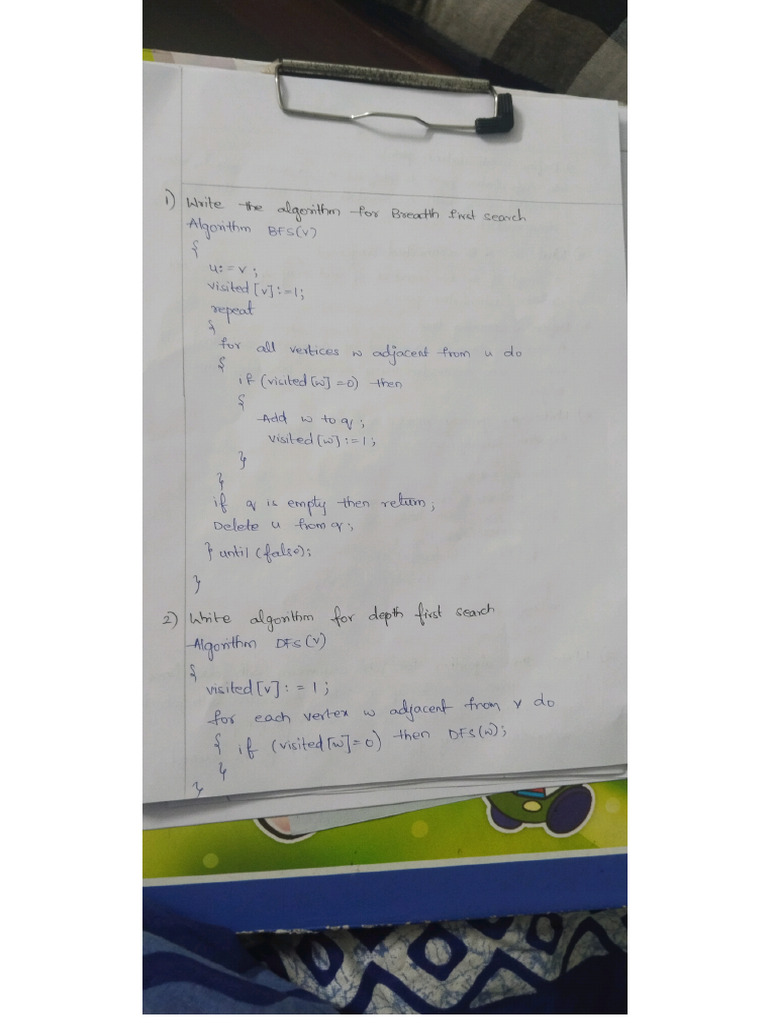 1) Write the algorithm for Breadth first search
Algorithm BFS(v)
{
u:=v;
visited[v]:=1;
repeat
{
for all vertices w adjacent from u do
{
if (visited[w]=0) then
{
Add w to q;
visited[w]:=1;
}
}
if q is empty then return;
Delete u from q;
} until (false);
}
2) Write algorithm for depth first search
Algorithm DFS(v)
{
visited[v]:=1;
for each vertex w adjacent from v do
{ if (visited[w]=0) then DFS(w);
}
}